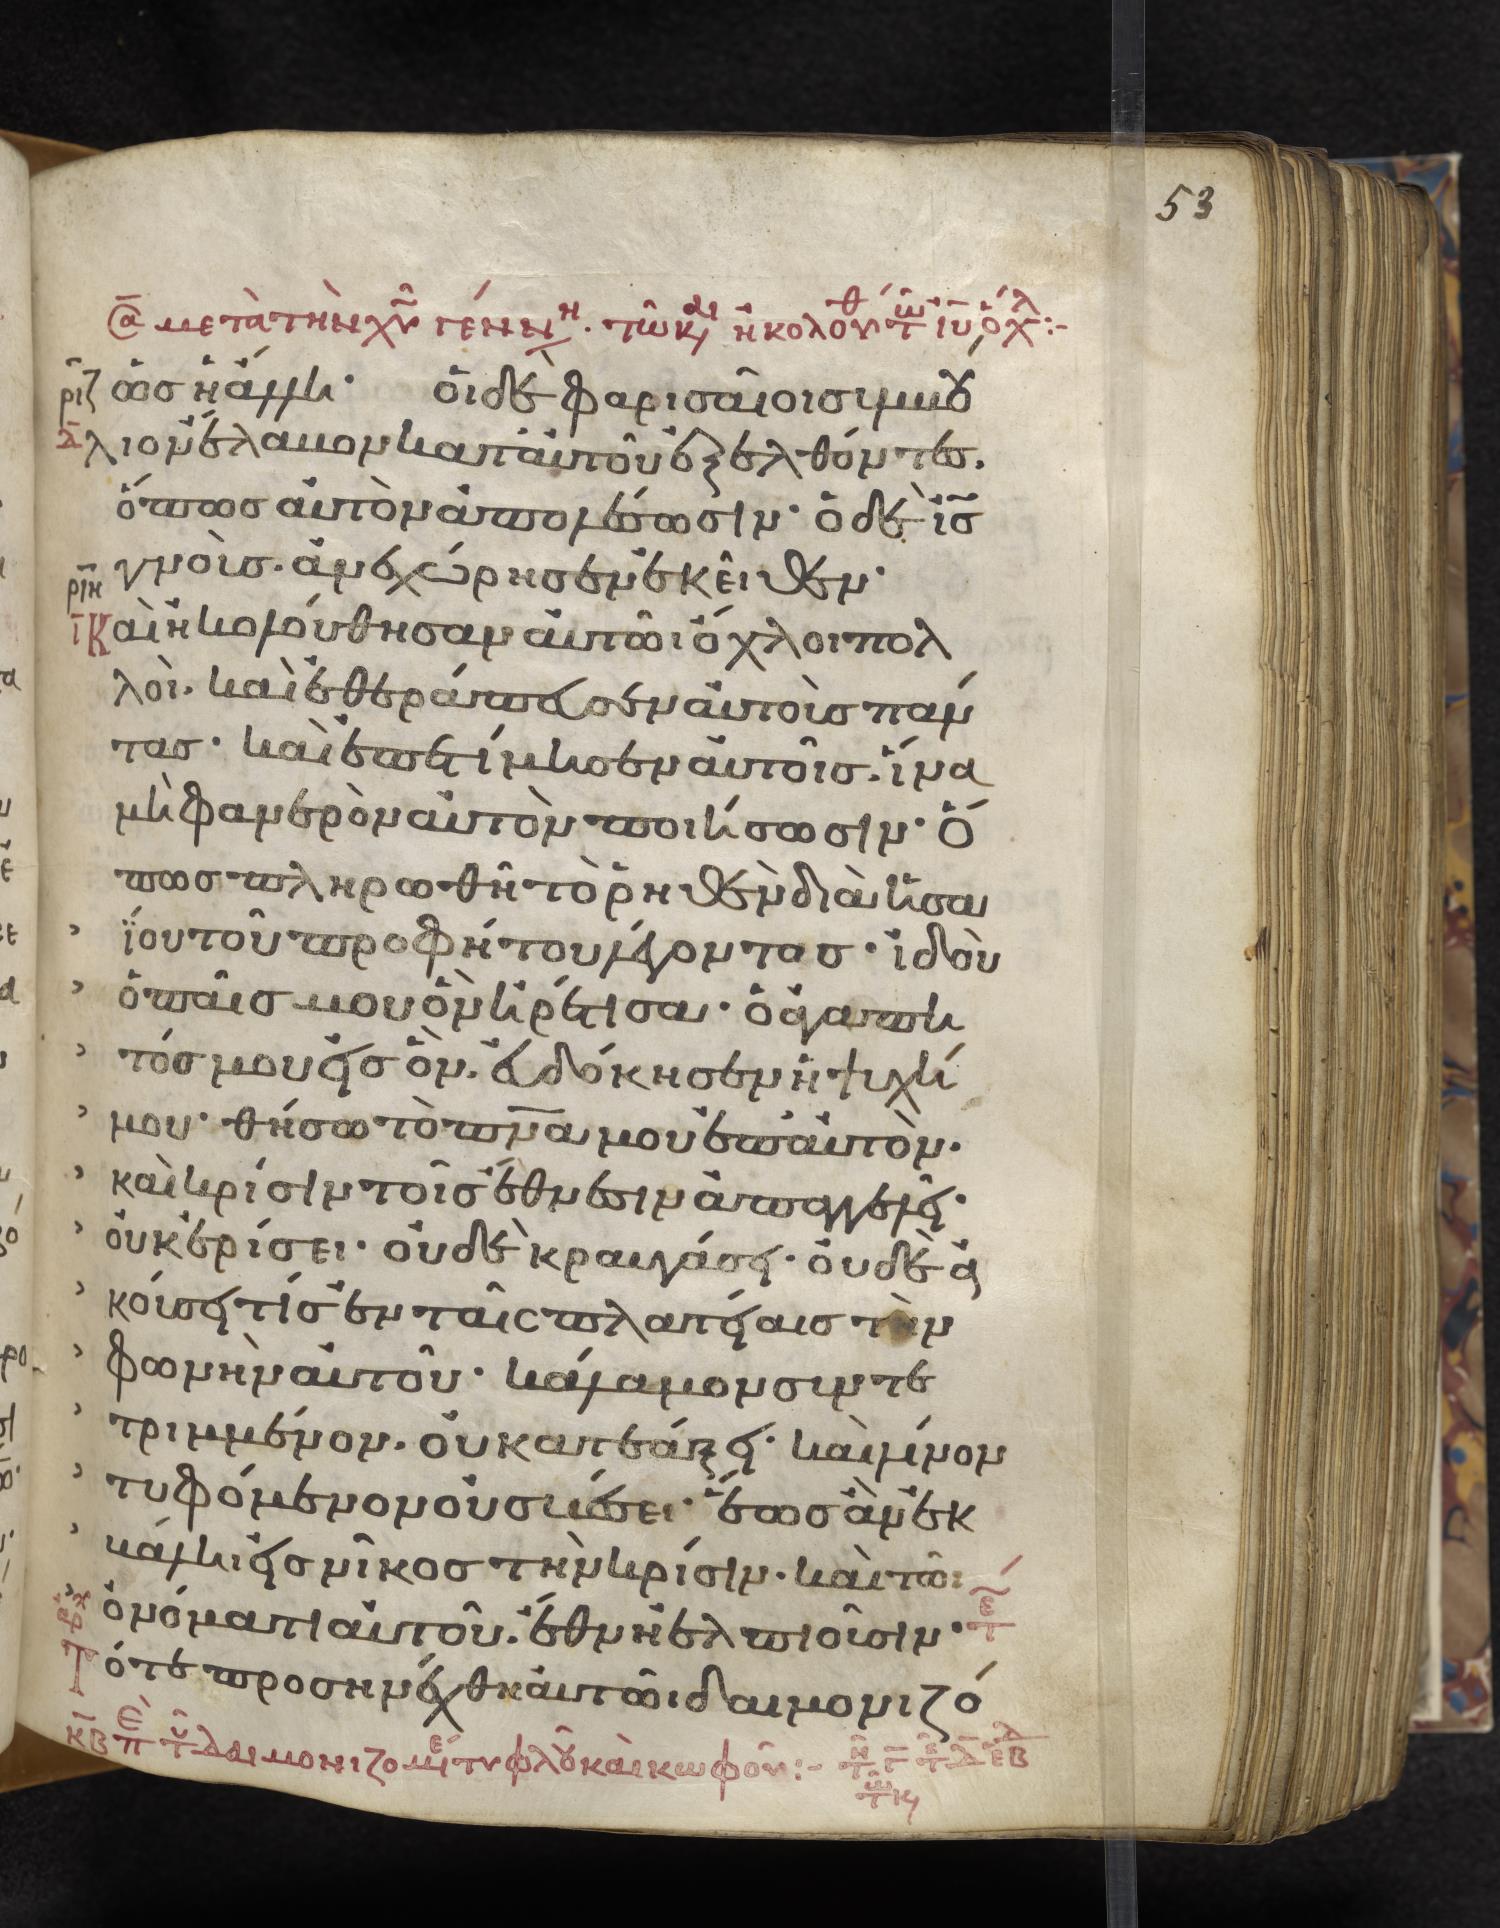 53
μετὰ τὴν χυ γέννη. τῶ καιρῶ ἠκολούθ τῶ ιυ ὄχλ:-
ριζ ὡσ ἡ ἄλλη· ὁι δὲ φαρισαῖοι συμβού
δ λιον ἔλαβον κατ' ἀυτοῦ ἐξελθόντεσ.
ὅπωσ ἀυτὸν ἀπολέσωσιν· ὁ δὲ ισ
ριη γνοὺσ. ἀνεχώρησεν ἐκεῖθεν·
ι Καὶ ἠκολούθησαν ἀυτῶι ὄχλοι πολ
λοὶ. καὶ ἐθεράπευσεν ἀυτοὺσ πάν
τασ· καὶ ἐπετίμησεν ἀυτοῖσ. ἵνα
μὴ φανερὸν ἀυτὸν ποιήσωσιν· ὅ
πωσ πληρωθῆ τὸ ῥηθὲν διὰ ἡσα
ΐου τοῦ προφήτου λέγοντασ· ἰδοὺ
ὁ παῖσ μου ὃν ἡρέτισα· ὁ ἀγαπη
τόσ μου εἰσ ὃν. εὐδόκησεν ἡ ψυχή
μου· θήσω τὸ πνα μου ἐπ' ἀυτὸν.
καὶ κρίσιν τοῖσ ἔθνεσιν ἀπαγγελεῖ·
ὀυκ ἐρίσει· ὀυδὲ κραυγάσει· ὀυδὲ ἀ
κούσει τίσ ἐν ταῖς πλατείαισ τὴν
φωνὴν ἀυτοῦ· κάλαμον συντε
τριμμένον. ὀυ κατεάξει· καὶ λίνον
τυφόμενον ὀυ σβέσει· ἕωσ ἂν ἐκ
βάλη εἰσ νῖκοσ τὴν κρίσιν· καὶ τῶι
ὀνόματι ἀυτοῦ. ἔθνη ἐλπιοῦσιν·
Τότε προσηνέχθη ἀυτῶι δαιμονιζό
κβ πε τ δαιμονιζομε τυφλοῦ καὶ κωφοῦ:-